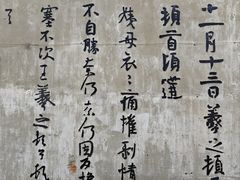 十一月十三日羲之頓
頓首頃遘
姨母哀〻痛摧剝情
不自勝奈何奈何因反慘
塞不次王羲之頓首頓